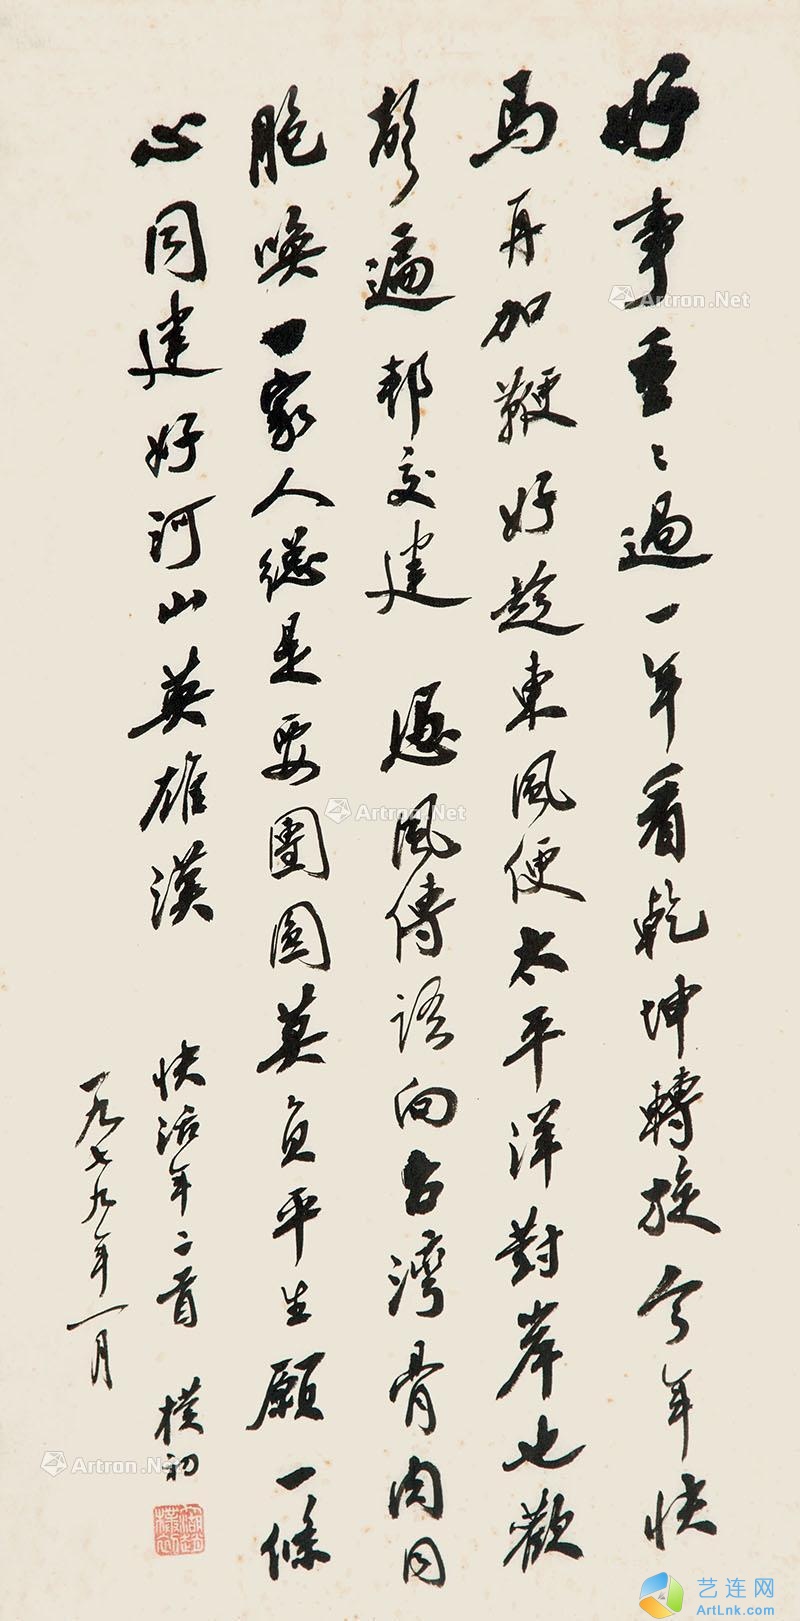 好事重〻過一年看乾坤轉旋今年快
馬再加鞭好趁東風便太平洋對岸也歡
顏遍邦交建 憑風傳語向台灣骨肉同
胞喚一家人總是要團圓莫負平生願一條
心同建好河山英雄漢
快活年二首 樸初
一九七九年一月
Artron.Net
Artron.Net
Artron.Net
艺连网
ArtLnk.com